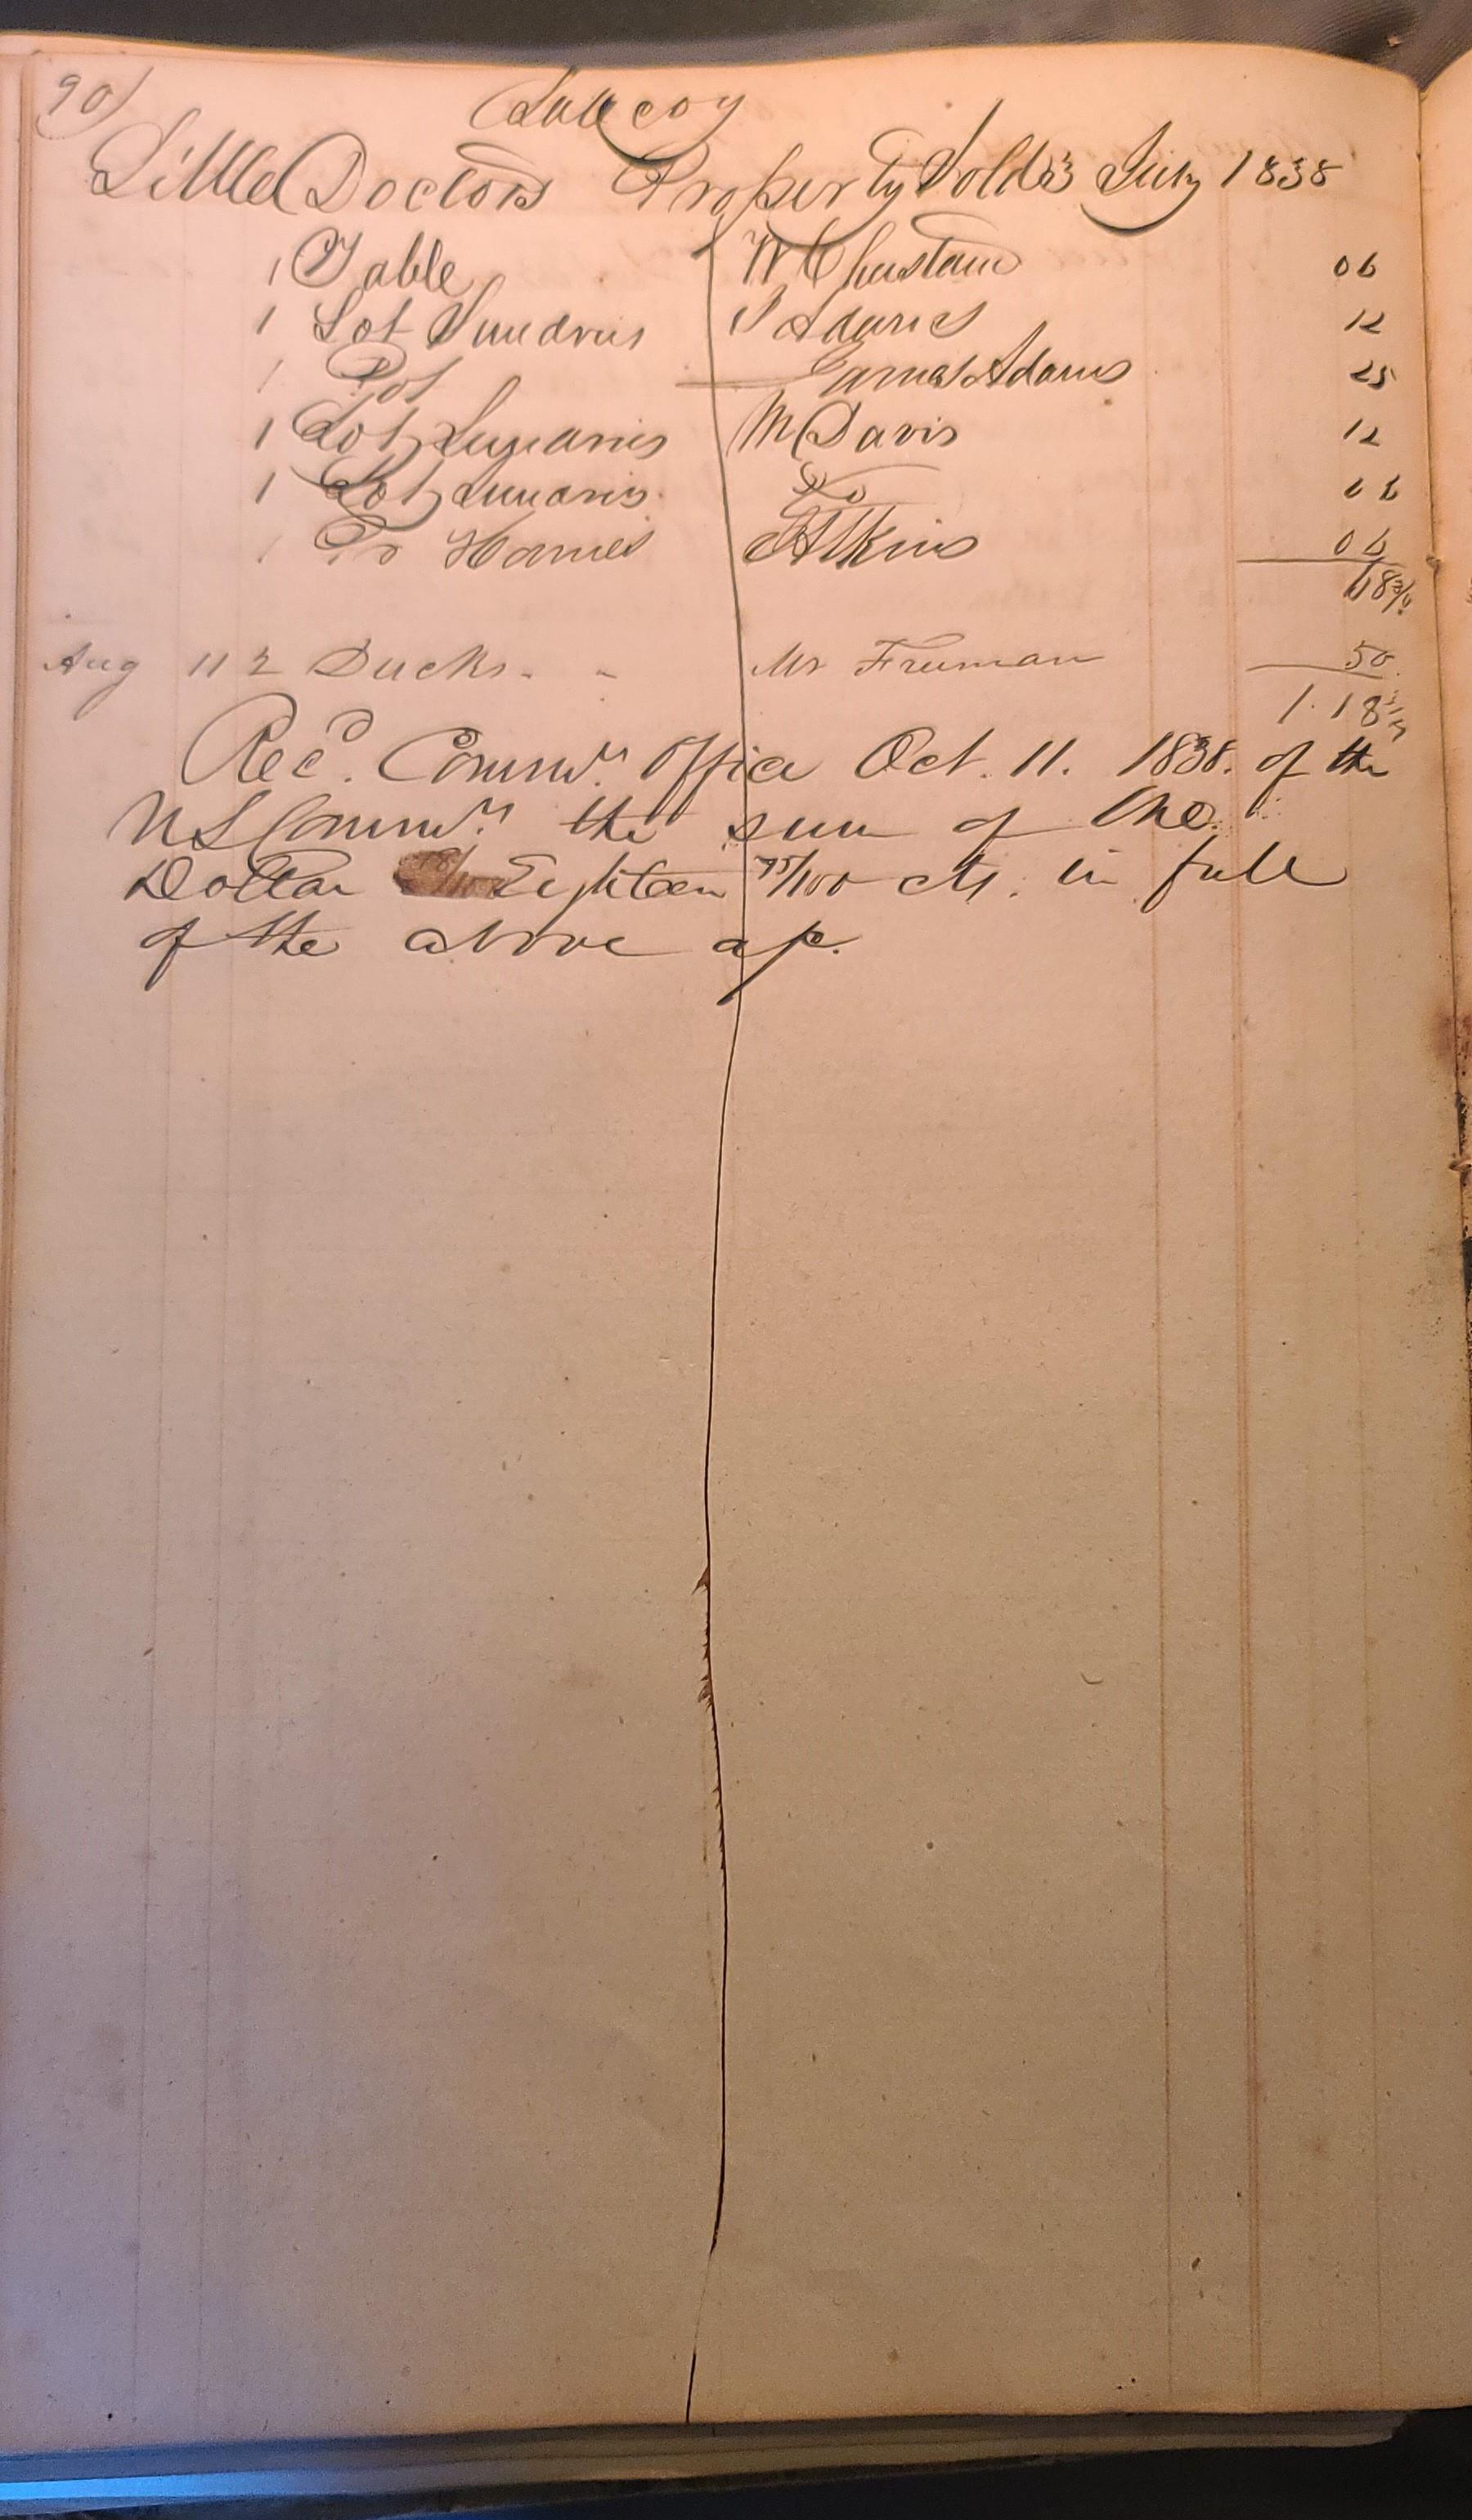 90)
Little Doctors Property Sold 3 July 1838
1 Table W Chastain 06
1 Lot Sundries S Adams 12
1 Pot James Adams 25
1 Lot Sundries M Davis 12
1 Lot Sundries Do 06
1 Pr Hames Atkins 06
68 3/4
Aug 11 2 Ducks. " Mr Freeman 50
1.18 3/4
Recd. Commrs. Office Oct. 11. 1838. of the
US Commrs. the sum of One
Dollar Eighteen 75/100 cts. in full
of the above a/c.